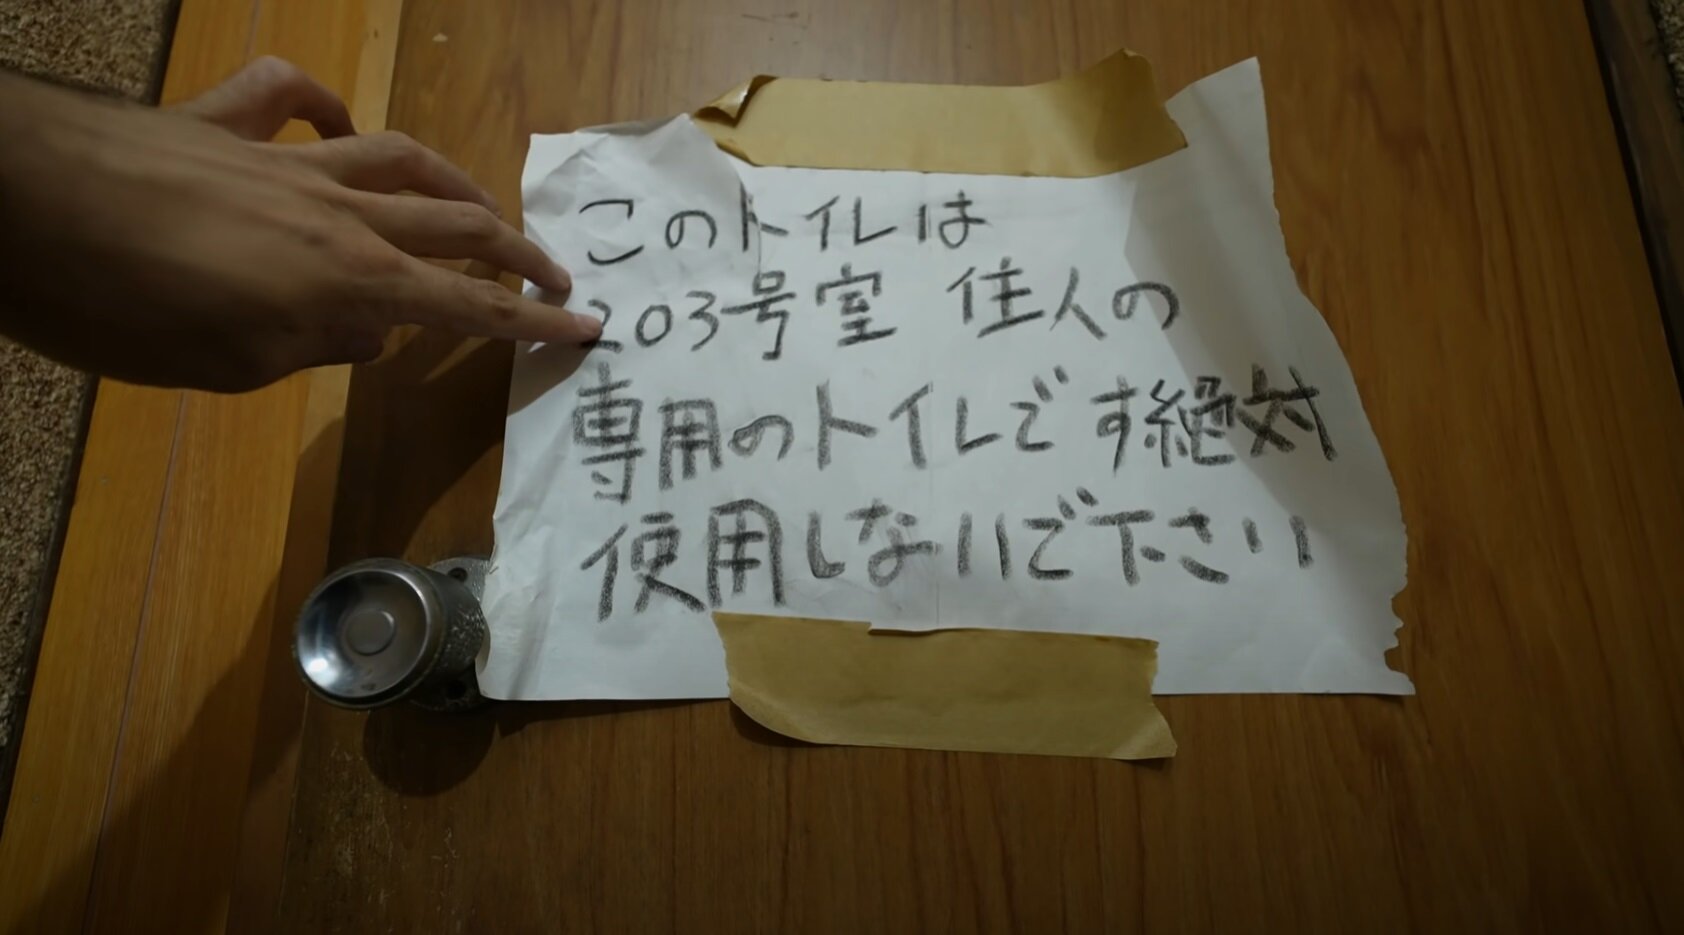 このトイレは
203号室 住人の
専用のトイレです絶対
使用しないで下さい